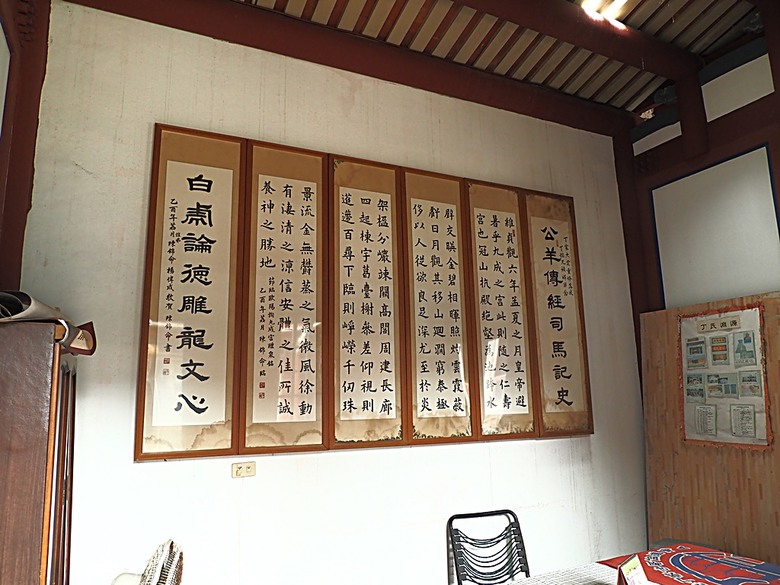 公羊傳經司馬記史
維貞觀六年孟夏之月皇帝避
暑乎九成之宮此則隨之仁壽
宮也冠山抗殿絕壑為池跨水
辟交暎金碧相暉照灼雲霞蔽
虧日月觀其移山迴澗窮泰極
侈以人從欲良足深尤至於炎
架楹分巖竦闕高閣周建長廊
四起棟宇葛臺榭參差仰視則
迢遰百尋下臨則崢嶸千仞珠
景流金無鬱蒸之氣微風徐動
有淒清之涼信安體之佳所誠
養神之勝地
節臨歐陽詢九成宮醴泉銘
乙酉年荔月陳錦命臨
白虎論德雕龍文心
乙酉年荔月陳錦命楊偉成敬賀陳錦命書
丁氏淵源